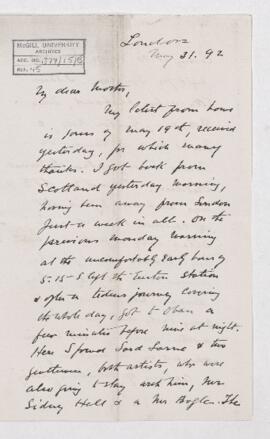 McGILL UNIVERSITY
ARCHIVES
ACC. NO.
REF. 45
London
May 31. 92
My dear Mother,
My latest from home
is yours of May 19th, received
yesterday, for which many
thanks. I got back from
Scotland yesterday morning,
having been away from London
just a week in all. On the
previous Monday morning
at the uncomfortably early hour of
5.15 I left the Euston Station
& after a tedious journey
the whole day, got to Oban a
few minutes before nine at night.
Here I found Lord Lorne & two
gentlemen, both artists, who were
also going to stay with him, Mr
Sidney Hall & a Mr Bogle. The